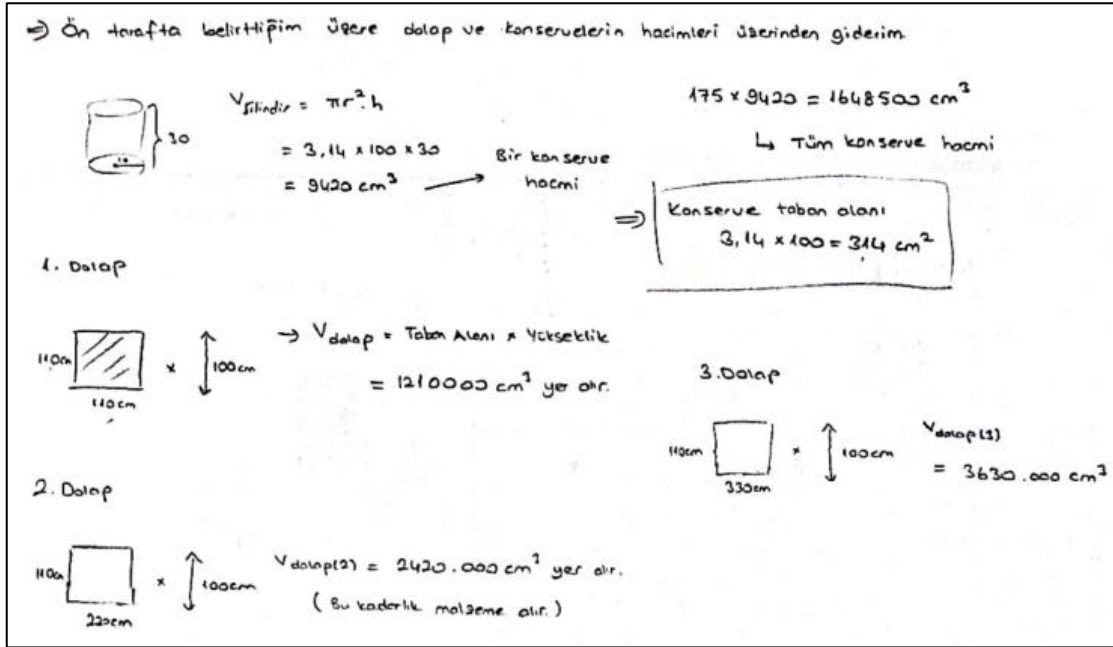 ⇒ Ön tarafta belirttiğim üzere dolap ve konservelerin hacimleri üzerinden giderim.
30
10
Vsilindir = πr².h
= 3,14 x 100 x 30
= 9420 cm³ → Bir konserve hacmi
175 x 9420 = 1648500 cm³
↳ Tüm konserve hacmi
⇒ Konserve taban alanı
3,14 x 100 = 314 cm²
1. Dolap
110cm
110cm
x
100cm
→ Vdolap = Taban Alanı x Yükseklik
= 1210000 cm³ yer alır.
2. Dolap
110cm
220cm
x
100cm
Vdolap(2) = 2420.000 cm³ yer alır.
(Bu kaderlik malzeme alır.)
3. Dolap
110cm
330cm
x
100cm
Vdolap(3)
= 3630.000 cm³